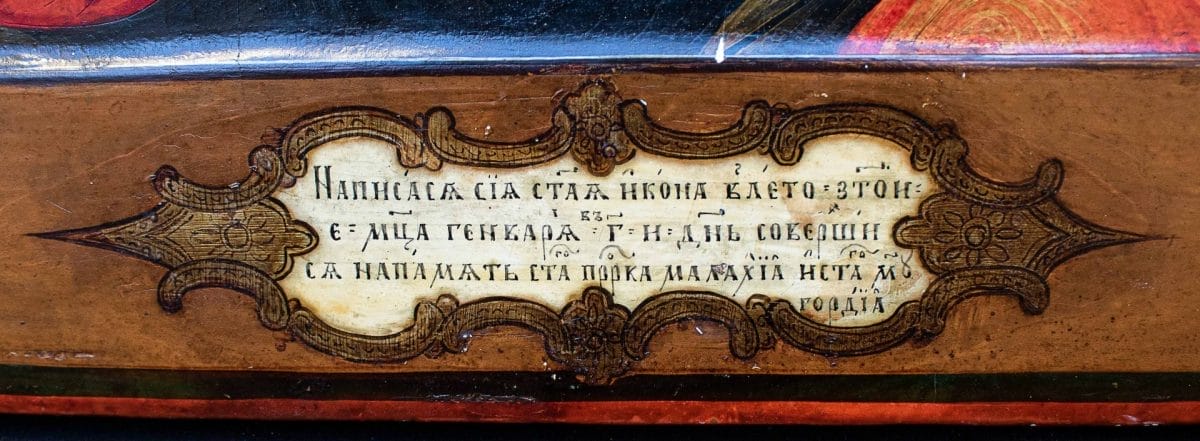 Написася сїя стая їкона влето=зтои=
е=мца генваря=г=и=въ днь соверши
ся напамять ста прка малахїа иста мꙋ
гордїа